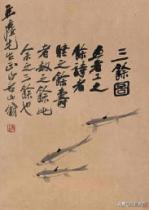 三餘圖
畫者工之
餘詩者
睡之餘壽
者劫之餘此
余之三餘也
先生正白石山翁